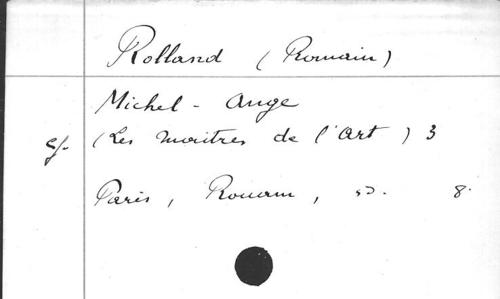 Rolland (Romain)
Michel-Ange
(Les maitres de l'art) 3
Paris, Rouam, s.d. 8.